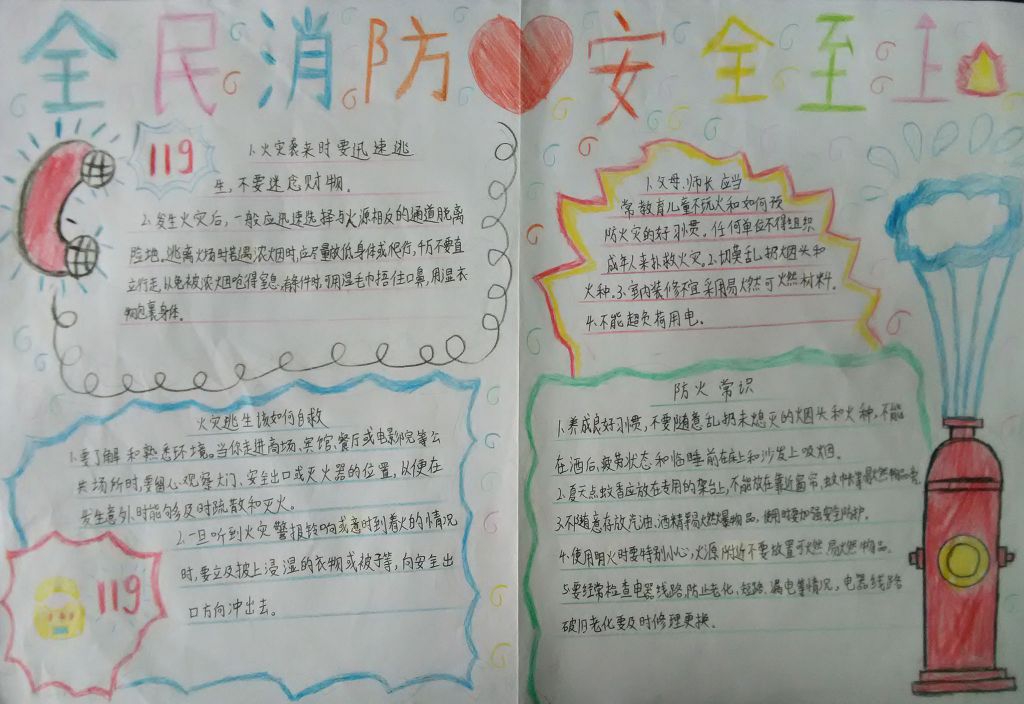 全民消防安全至上
119
1.火灾袭来时要迅速逃
生，不要迷恋财物。
2.发生火灾后，一般应迅速选择与火源相反的通道脱离
险地。逃离火场时若遇浓烟时，应尽量放低身体或爬行，千万不要直
立行走，以免被浓烟呛得窒息。有条件时，可用湿毛巾捂住口鼻，用湿衣
物包裹身体。
1.父母、师长应当
常教育儿童不玩火和如何预
防火灾的好习惯，任何单位不得组织
成年人来扑救火灾。2.切莫乱扔烟头和
火种。3.室内装修不宜采用易燃可燃材料。
4.不能超负荷用电。
火灾逃生该如何自救
1.要了解和熟悉环境。当你走进商场、宾馆、餐厅或电影院等公
共场所时，要留心观察大门、安全出口或灭火器的位置，以便在
发生意外时能够及时疏散和灭火。
2.一旦听到火灾警报铃响或意时到着火的情况
时，要立及披上浸湿的衣物或被子等，向安全出
口方向冲出去。
119
防火常识
1.养成良好习惯，不要随意乱扔未熄灭的烟头和火种，不能
在酒后，疲劳状态和临睡前在床上和沙发上吸烟。
2.夏天点蚊香应放在专用的架台上，不能放在靠近窗帘，蚊帐等易燃物品旁。
3.不随意存放汽油、酒精等易燃易爆物品，使用时要加强安全防护。
4.使用明火时要特别小心，火源附近不要放置可燃易燃物品。
5.要经常检查电器线路，防止老化、短路、漏电等情况，电器线路
破旧老化要及时修理更换。